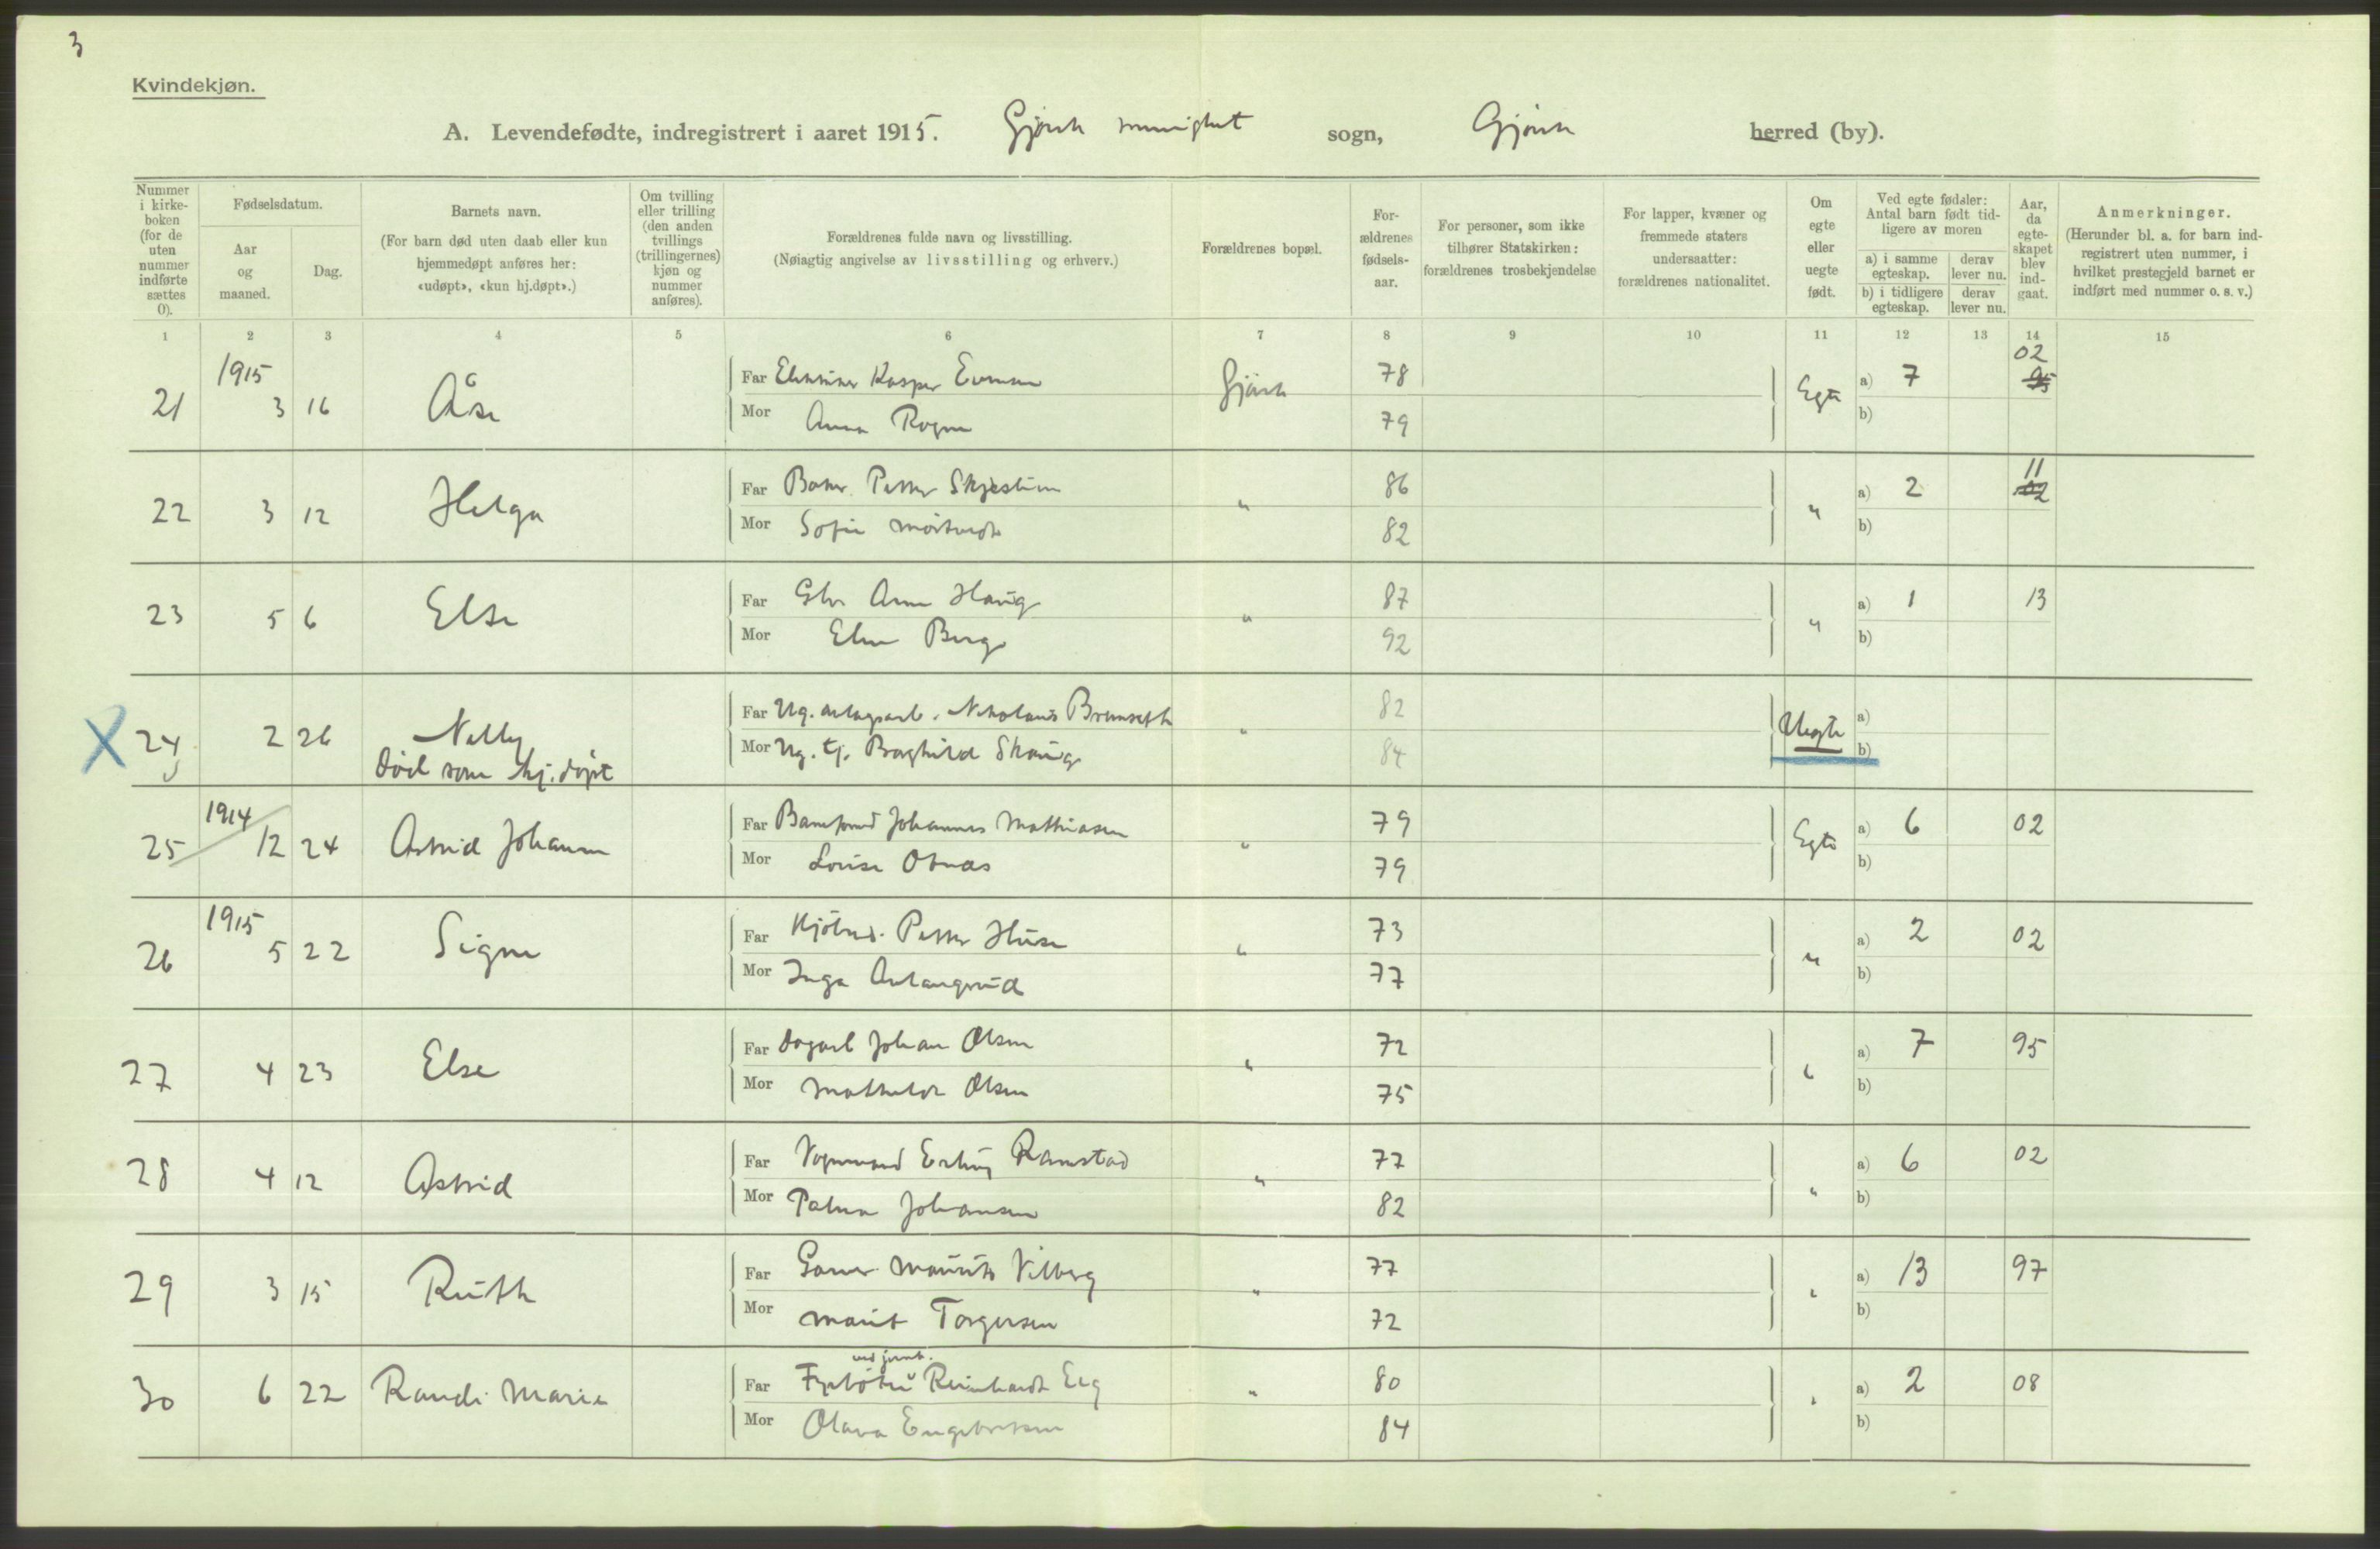 3
Kvindekjøn.
A. Levendefødte, indregistrert i aaret 1915. Gjøvik menighet sogn, Gjøvik herred (by).
Nummer i kirke-boken (for de uten nummer indførte sættes 0).
Fødselsdatum.
Aar og maaned.
Dag.
Barnets navn.
(For barn død uten daab eller kun hjemmedøpt anføres her: «udøpt», «kun hj.døpt».)
Om tvilling eller trilling (den anden tvillings (trillingernes) kjøn og nummer anføres).
Forældrenes fulde navn og livsstilling.
(Nøiagtig angivelse av livsstilling og erhverv.)
Forældrenes bopæl.
For-ældrenes fødsels-aar.
For personer, som ikke tilhører Statskirken: forældrenes trosbekjendelse
For lapper, kvæner og fremmede staters undersaatter: forældrenes nationalitet.
Om egte eller uegte født.
Ved egte fødsler: Antal barn født tid-ligere av moren
a) i samme egteskap.
derav lever nu.
b) i tidligere egteskap.
derav lever nu.
Aar, da egte-skapet blev ind-gaat.
Anmerkninger.
(Herunder bl. a. for barn ind-registrert uten nummer, i hvilket prestegjeld barnet er indført med nummer o. s. v.)
1 2 3 4 5 6 7 8 9 10 11 12 13 14 15
21 1915 3 16 Åse Far Kasper Evensen Gjøvik 78 Egte a) 7 02 95
Mor Anna Rogne 79 b)
22 3 12 Helga Far Baker Petter Skjestun " 86 " a) 2 11 02
Mor Sofie 82 b)
23 5 6 Else Far Arne Haug " 87 " a) 1 13
Mor Berg 92 b)
X 24 2 26 Nelly Far Ug. anlagsarb. Brenseth " 82 Uegte a)
død som hj.døpt Mor Ug. tj. Borghild Skaug 84 b)
25 1914 12 24 Astrid Johanne Far Baneformd Johannes Mathiasen " 79 Egte a) 6 02
Mor Lovise Obnæs 79 b)
26 1915 5 22 Signe Far Petter Huse " 73 " a) 2 02
Mor Inga 77 b)
27 4 23 Else Far Dagarb Johan Olsen " 72 " a) 7 95
Mor Mathilde Olsen 75 b)
28 4 12 Astrid Far Vognmand Erling Ramstad " 77 " a) 6 02
Mor Palma Johansen 82 b)
29 3 15 Ruth Far Garver Mauritz Vilberg " 77 " a) 13 97
Mor Marit Torgersen 72 b)
ved jernb.
30 6 22 Randi Marie Far Fyrbøter Reinhardt Eeg " 80 " a) 2 08
Mor Olava Engebretsen 84 b)